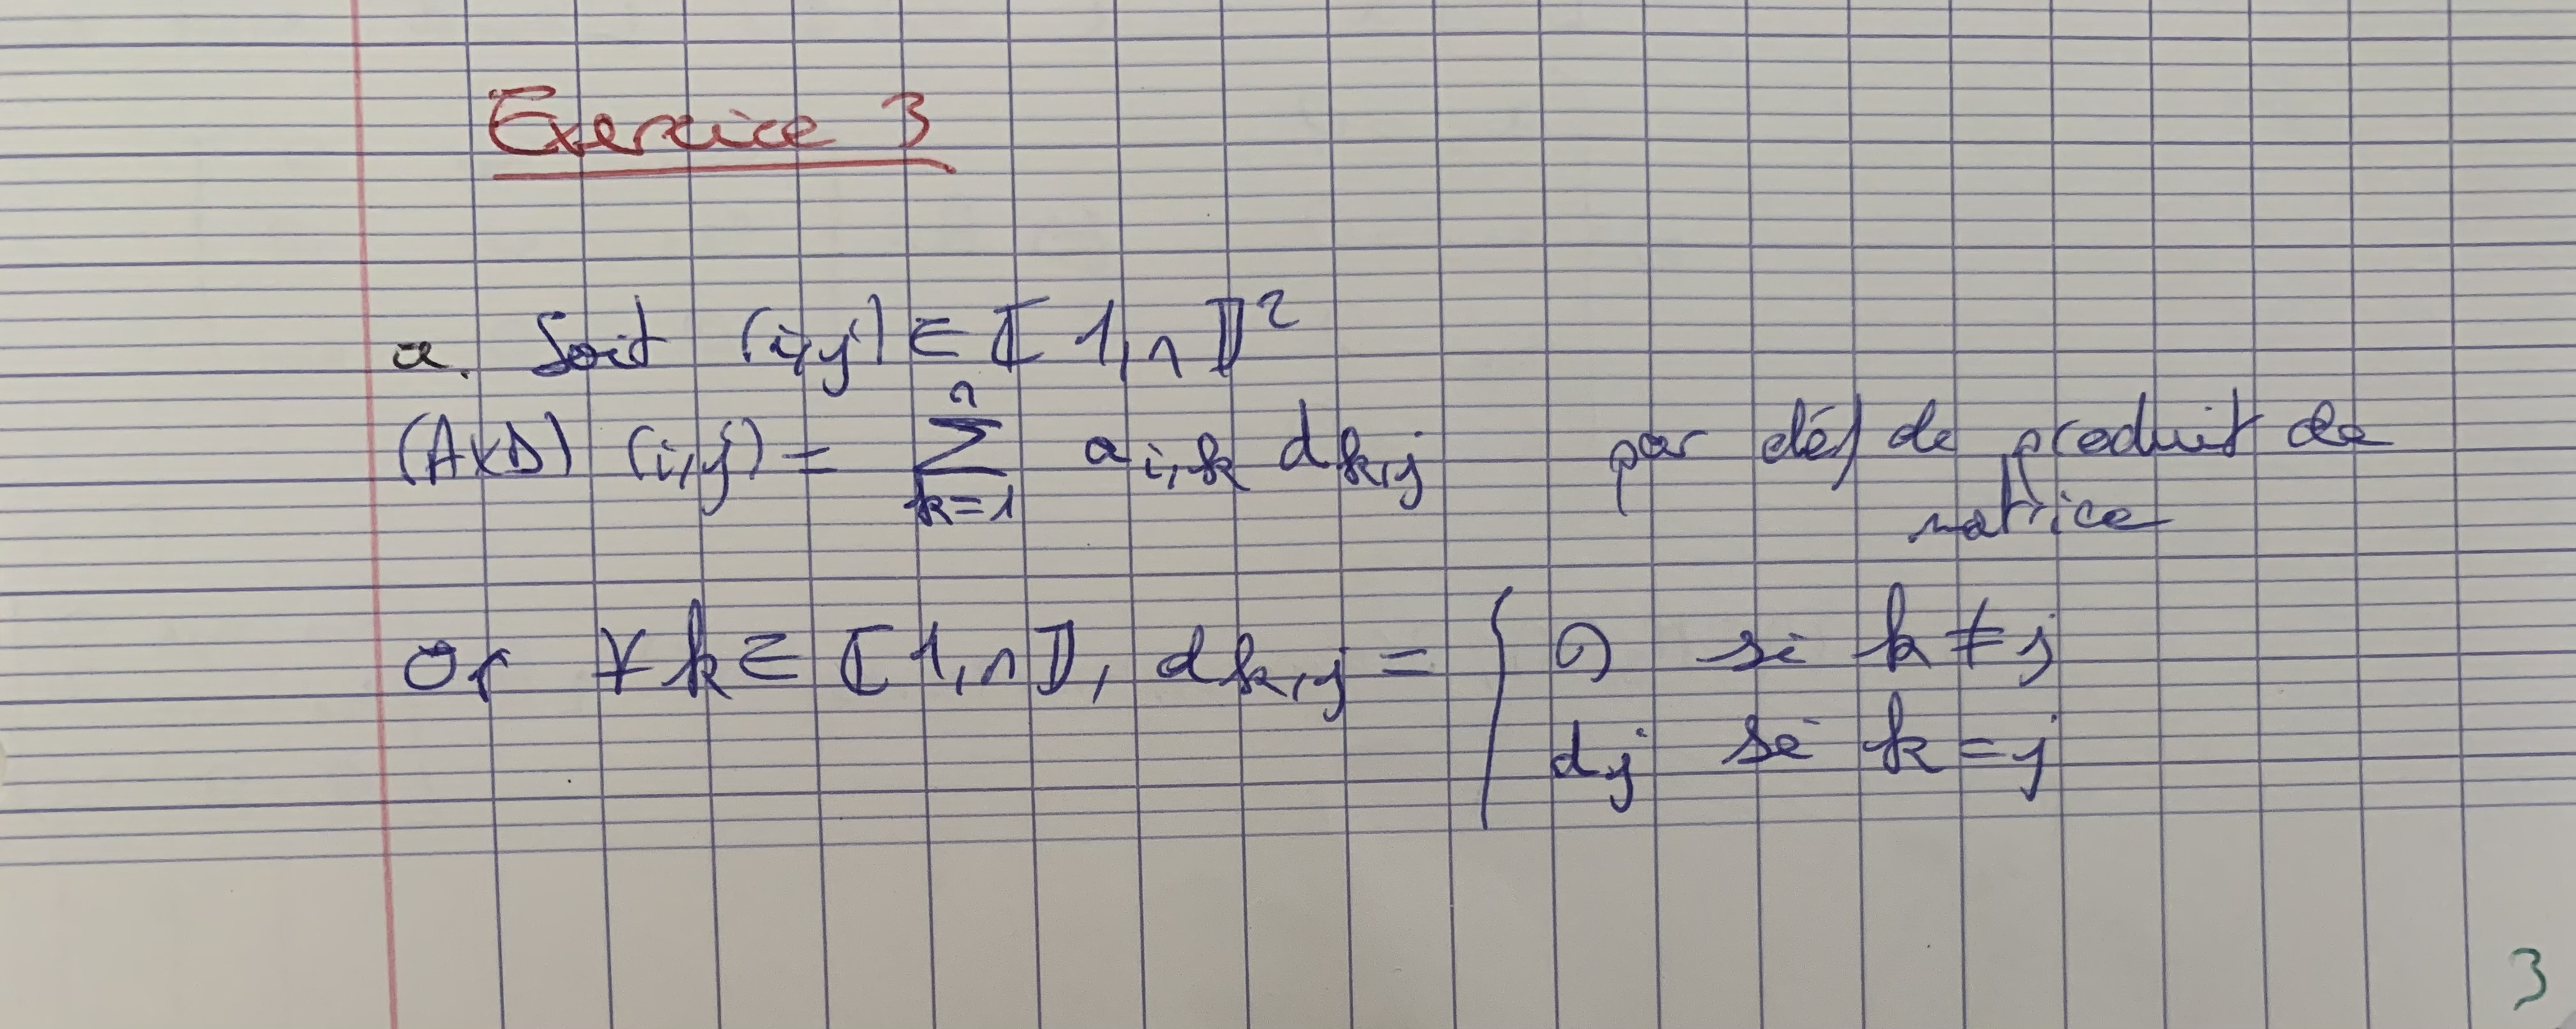 Exercice 3
a. Soit (i,j) ∈ ⟦1,n⟧²
(A×D) (i,j) = ∑_{k=1}^{n} a_{i,k} d_{k,j} par déf de produit de
matrice
Or ∀ k ∈ ⟦1,n⟧, d_{k,j} = { 0 si k ≠ j
d_j si k = j
3